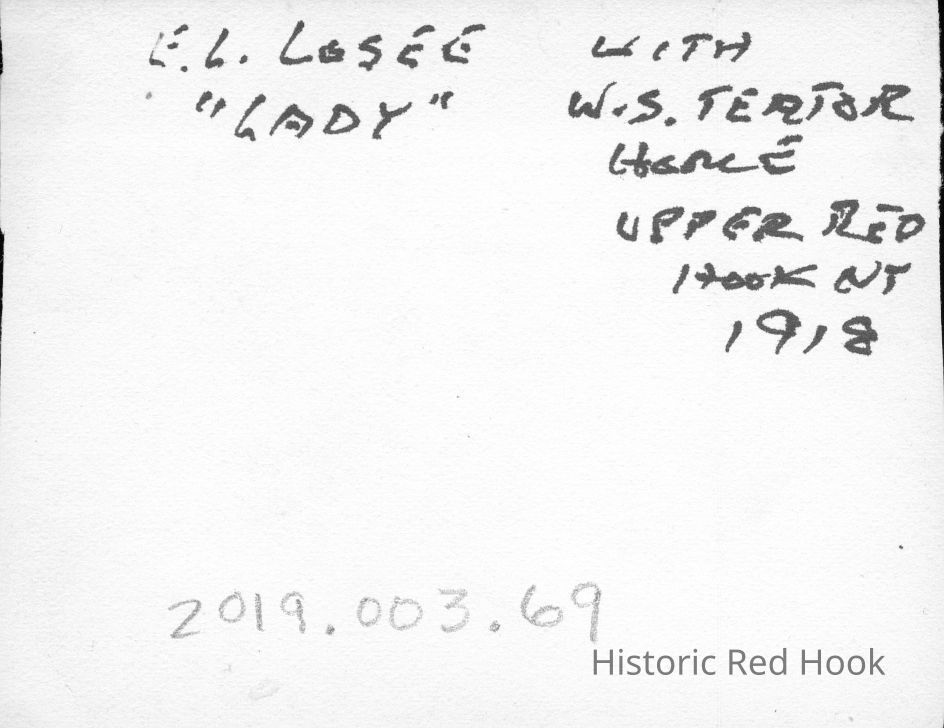 E.L. LOSEE
"LADY"
WITH
W.S. TEATOR
UPPER RED
HOOK NY
1918
2019.003.69
Historic Red Hook